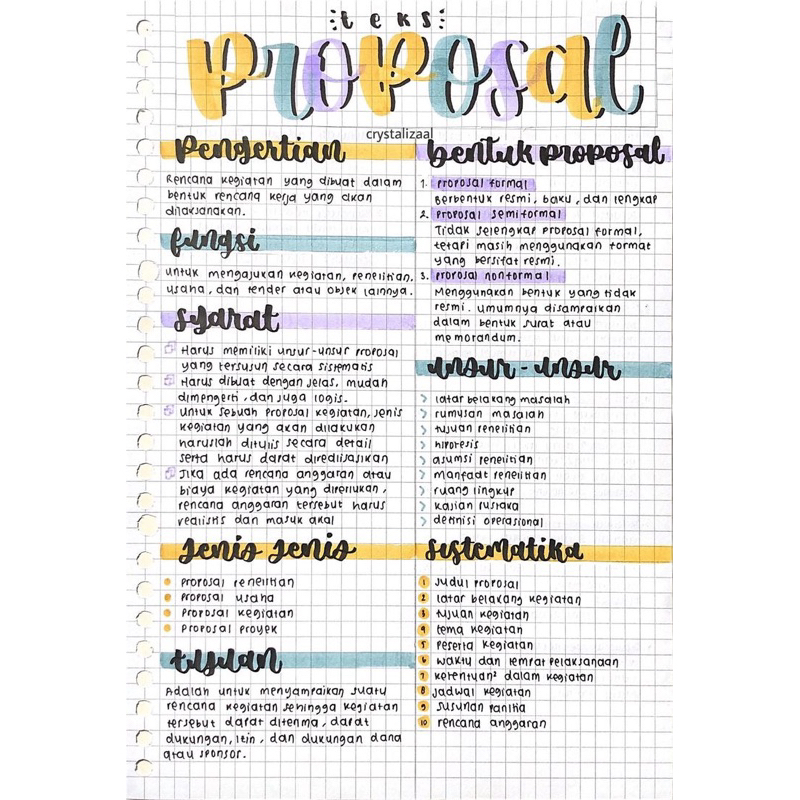 teks
proposal
crystalizaal
Pengertian
Rencana kegiatan yang dibuat dalam
bentuk rencana kerja yang akan
dilaksanakan.
fungsi
untuk mengajukan kegiatan, penelitian,
usaha, dan tender atau objek lainnya.
syarat
Harus memiliki unsur-unsur proposal
yang tersusun secara sistematis
Harus dibuat dengan jelas, mudah
dimengerti, dan juga logis.
untuk sebuah proposal kegiatan, jenis
kegiatan yang akan dilakukan
haruslah ditulis secara detail
serta harus dapat direalisasikan
Jika ada rencana anggaran atau
biaya kegiatan yang diperlukan,
rencana anggaran tersebut harus
realistis dan masuk akal
Jenis Jenis
proposal penelitian
proposal usaha
proposal kegiatan
proposal proyek
tujuan
Adalah untuk menyampaikan suatu
rencana kegiatan sehingga kegiatan
tersebut dapat diterima, dapat
dukungan, izin, dan dukungan dana
atau sponsor.
bentuk proposal
1. proposal formal
Berbentuk resmi, baku, dan lengkap
2. proposal semiformal
Tidak selengkap proposal formal,
tetapi masih menggunakan format
yang bersifat resmi.
3. proposal nonformal
Menggunakan bentuk yang tidak
resmi. umumnya disampaikan
dalam bentuk surat atau
memorandum.
unsur - unsur
latar belakang masalah
rumusan masalah
tujuan penelitian
hipotesis
asumsi penelitian
manfaat penelitian
ruang lingkup
kajian pustaka
definisi operasional
sistematika
1 judul proposal
2 latar belakang kegiatan
3 tujuan kegiatan
4 tema kegiatan
5 peserta kegiatan
6 waktu dan tempat pelaksanaan
7 ketentuan² dalam kegiatan
8 jadwal kegiatan
9 susunan panitia
10 rencana anggaran